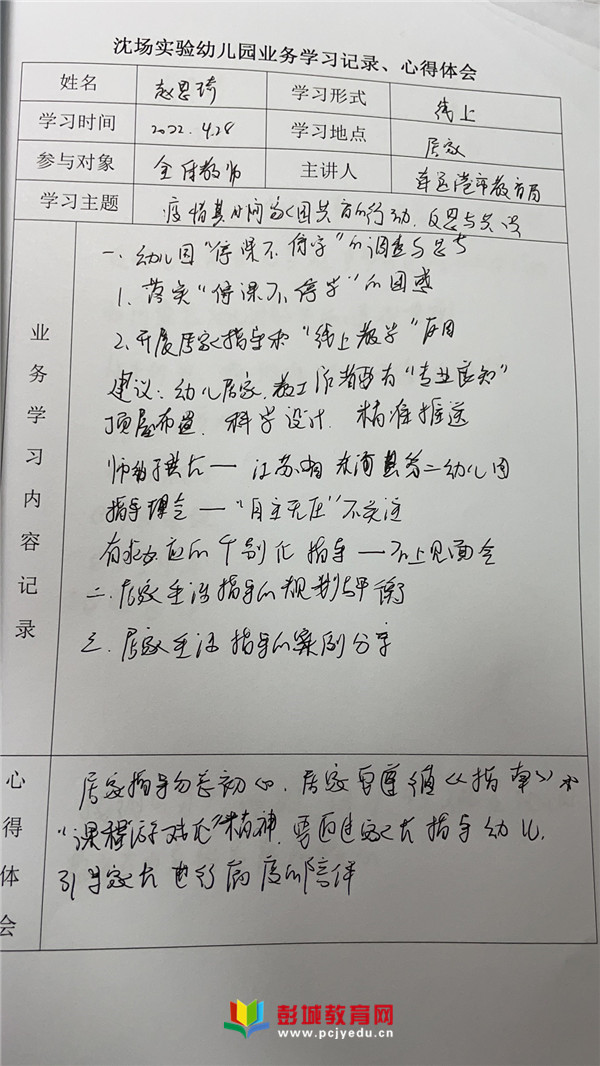 沈场实验幼儿园业务学习记录、心得体会
姓名 赵思琦 学习形式 线上
学习时间 2022.4.28 学习地点 居家
参与对象 全体教师 主讲人 连云港市教育局
学习主题 疫情期间家园共育的行动、反思与共识
业务学习内容记录
一、幼儿园“停课不停学”的调查与思考
1. 落实“停课不停学”的困惑
2. 开展居家指导和“线上教学”应用
建议：幼儿居家，教工作者要为“专业告知”
顶层布置、科学设计、精准推送
江苏省东海县第二幼儿园
指导理念—“自主无压”不关注
有求必应的个别化指导—不上见面会
二、居家生活指导的规划与平衡
三、居家生活指导的案例分享
心得体会
居家指导勿忘初心，居家要遵循《指南》和
“课程游戏化”精神，要通过家长指导幼儿，
引导家长进行高质的陪伴
彭城教育网
www.pcjyedu.cn